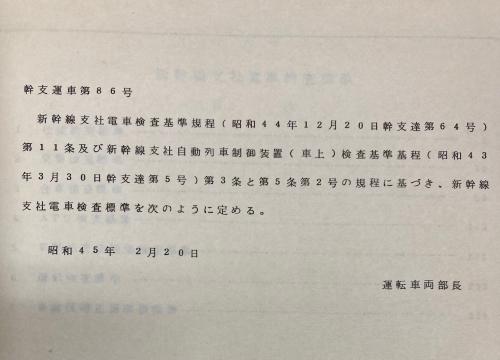 幹支運車第86号
新幹線支社電車検査基準規程(昭和44年12月20日幹支達第64号)
第11条及び新幹線支社自動列車制御装置(車上)検査基準基程(昭和43
年3月30日幹支達第5号)第3条と第5条第2号の規程に基づき、新幹線
支社電車検査標準を次のように定める。
昭和45年 2月20日
運転車両部長